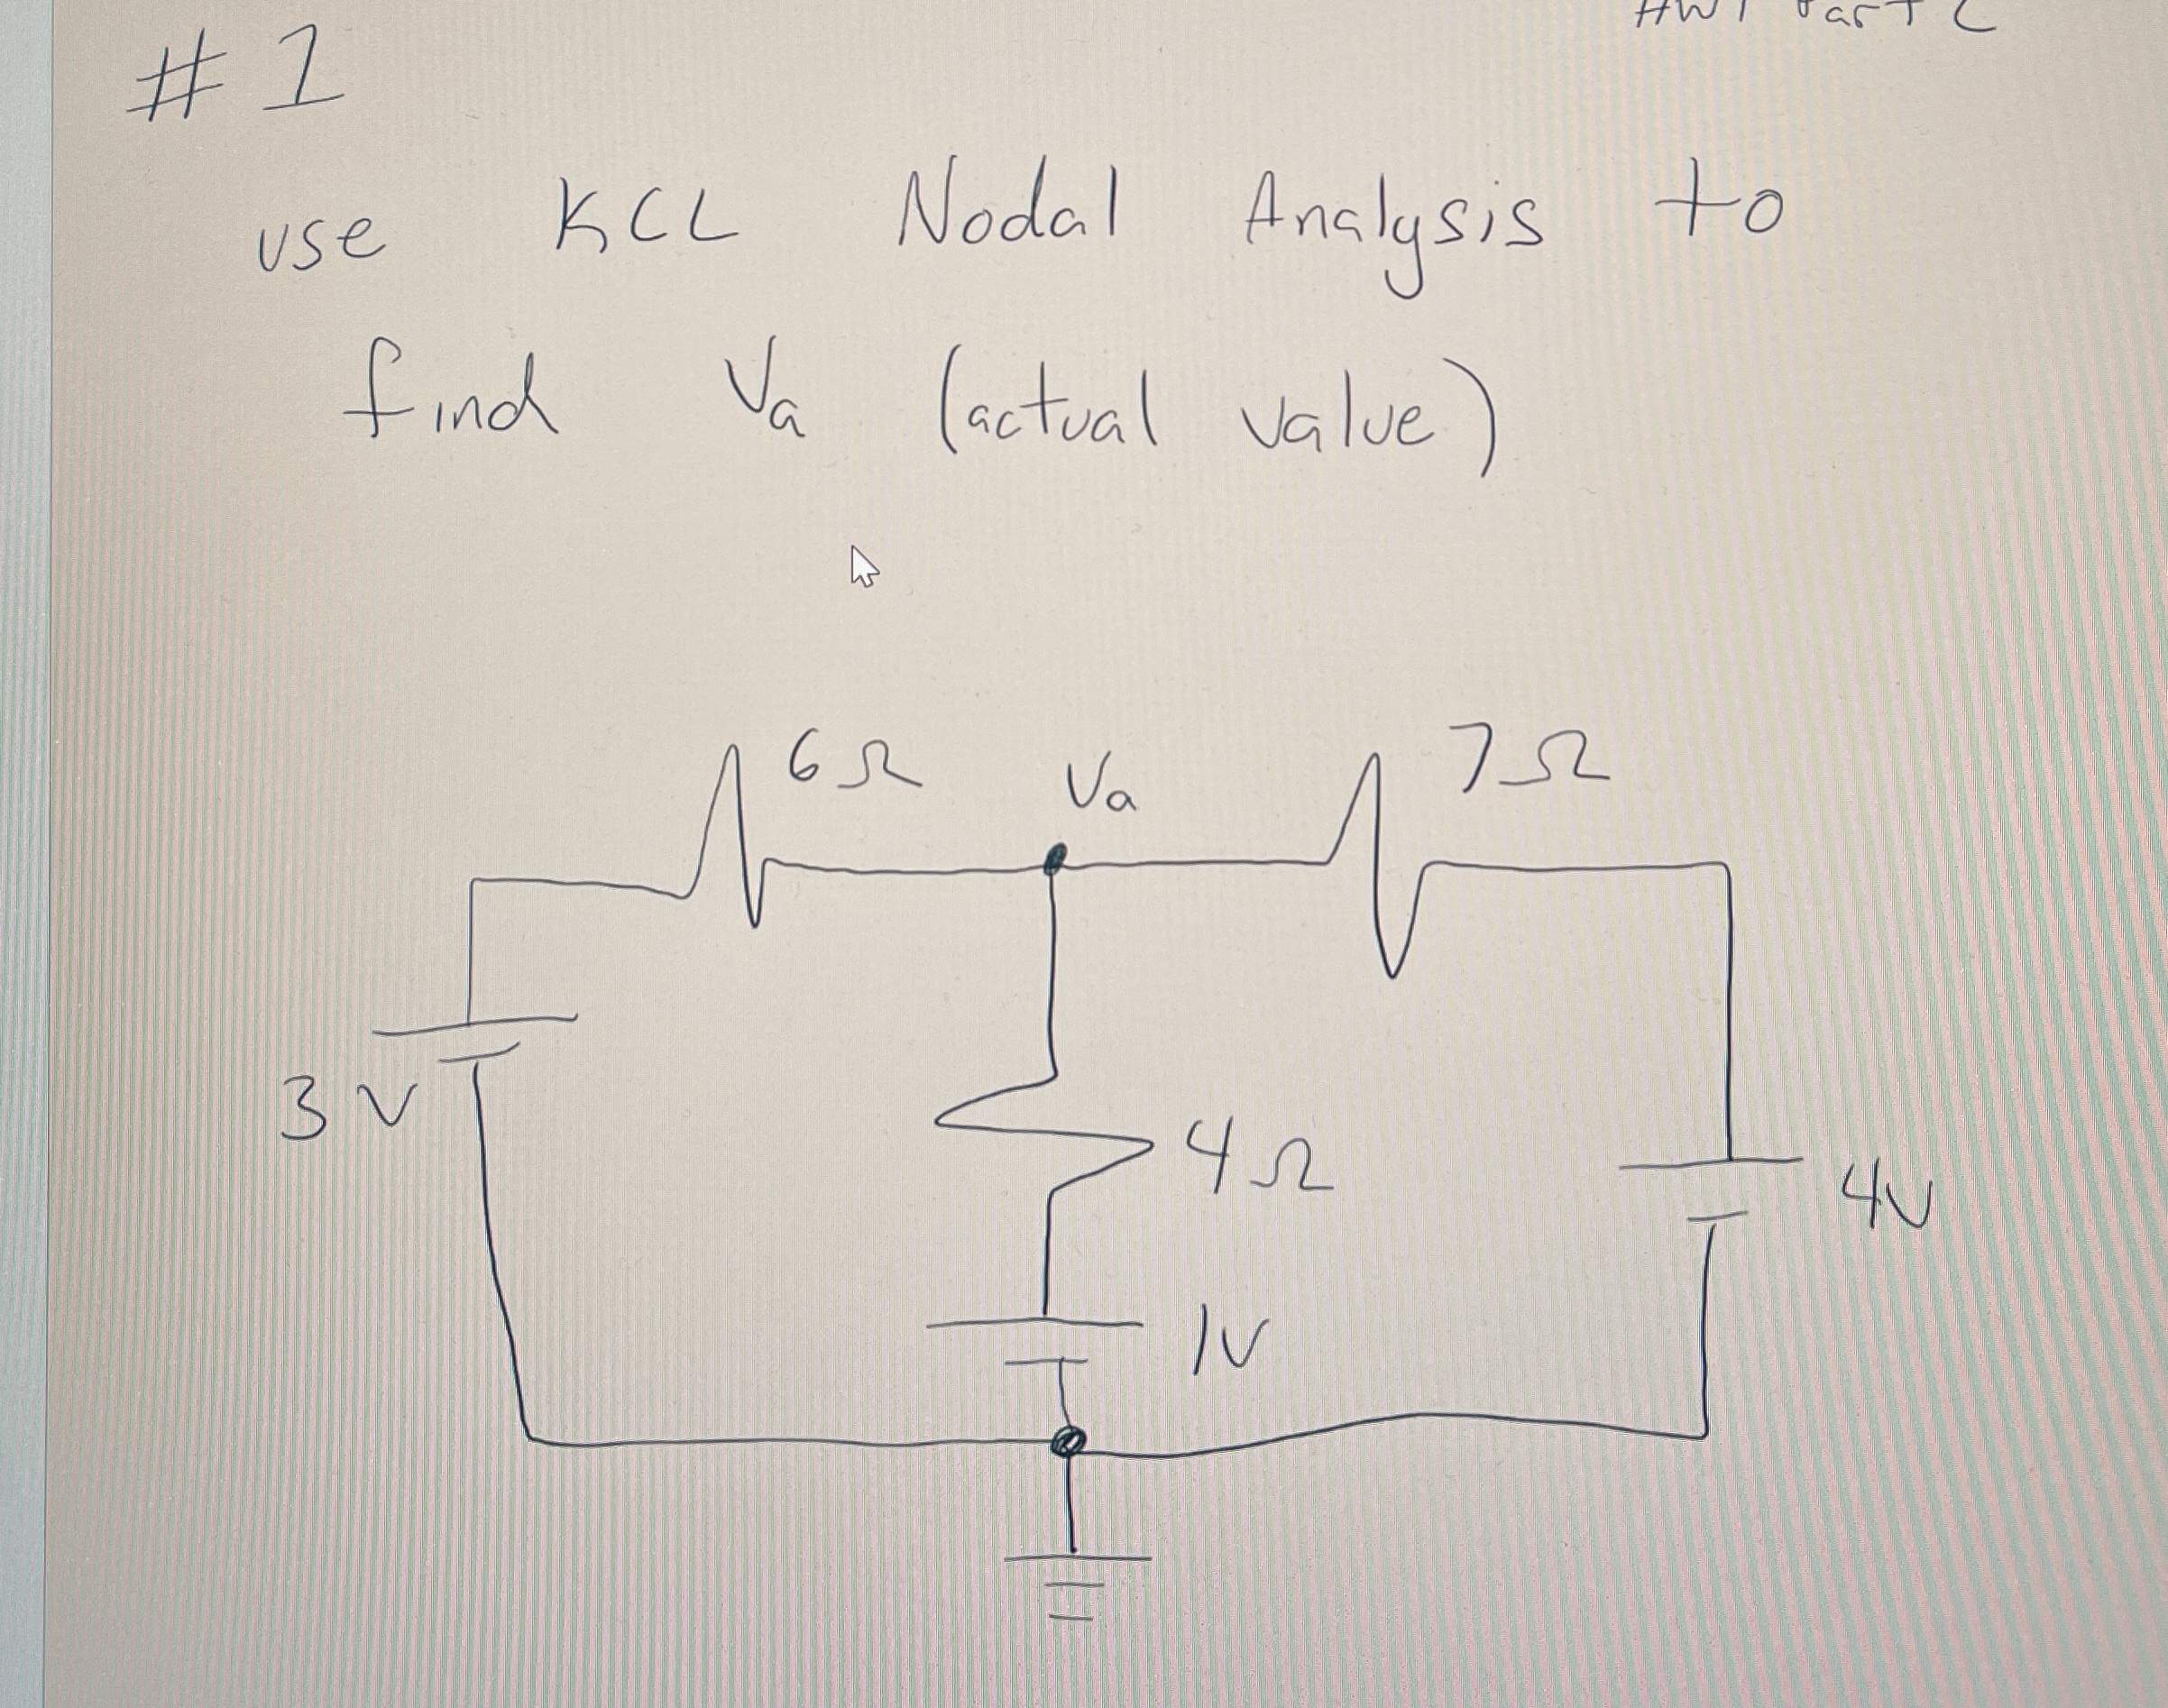 #1
use KCL Nodal Analysis to
find Va (actual value)
6Ω
Va
7Ω
3V
4Ω
4V
1V